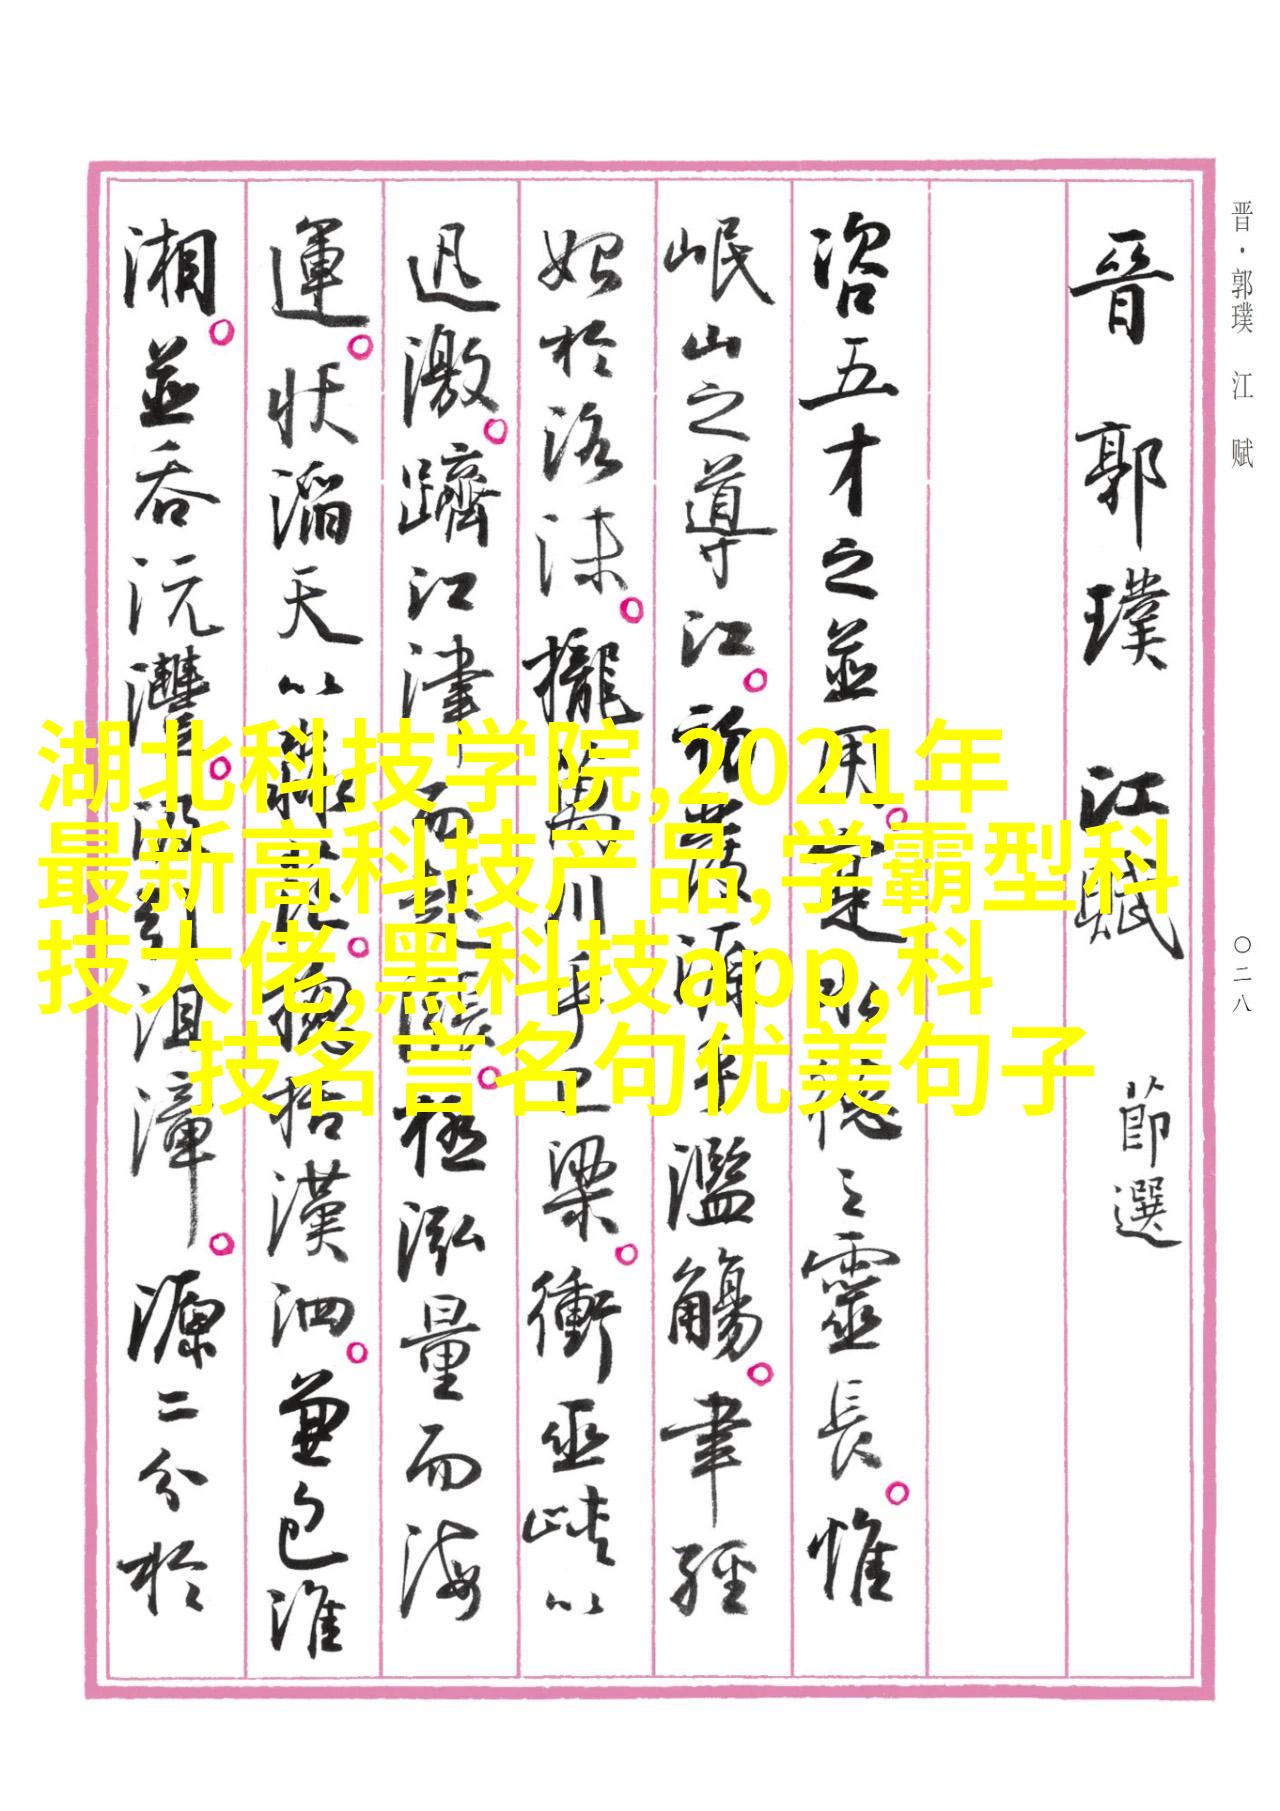 晋·郭璞 江 赋
〇二八
晉郭璞江賦 節選
咨五才之並用。寔水德之靈長。惟
岷山之導江。初發源乎濫觴。聿經
始於洛沬。攏萬川乎巴梁。衝巫峽以
迅激。躋江津而起漲。極泓量而海
運。狀滔天以淼茫。揔括漢泗。兼包淮
湘。並吞沅灃。汲引沮漳。源二分於
湖北科技学院,2021年
最新高科技产品,学霸型科
技大佬,黑科技app,科
技名言名句优美句子